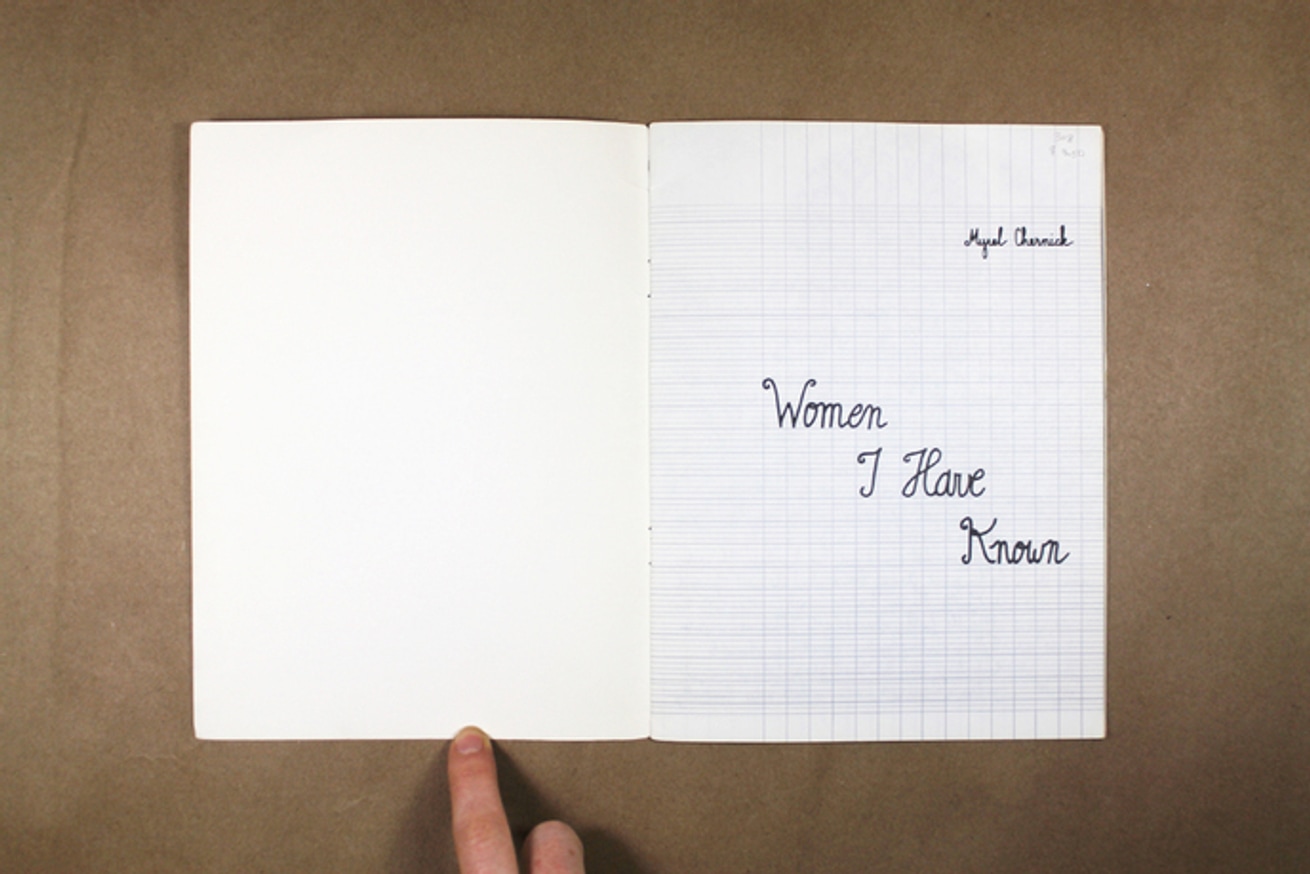 Myrel Chernick
Women
I Have
Known